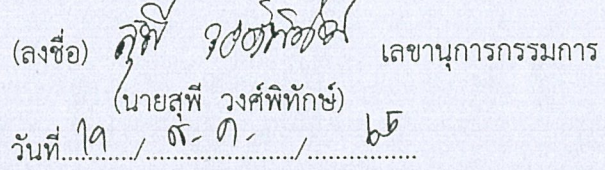 (ลงชื่อ) สุพี วงศ์พิทักษ์ เลขานุการกรรมการ
(นายสุพี วงศ์พิทักษ์)
วันที่....../ ส.ค. /......